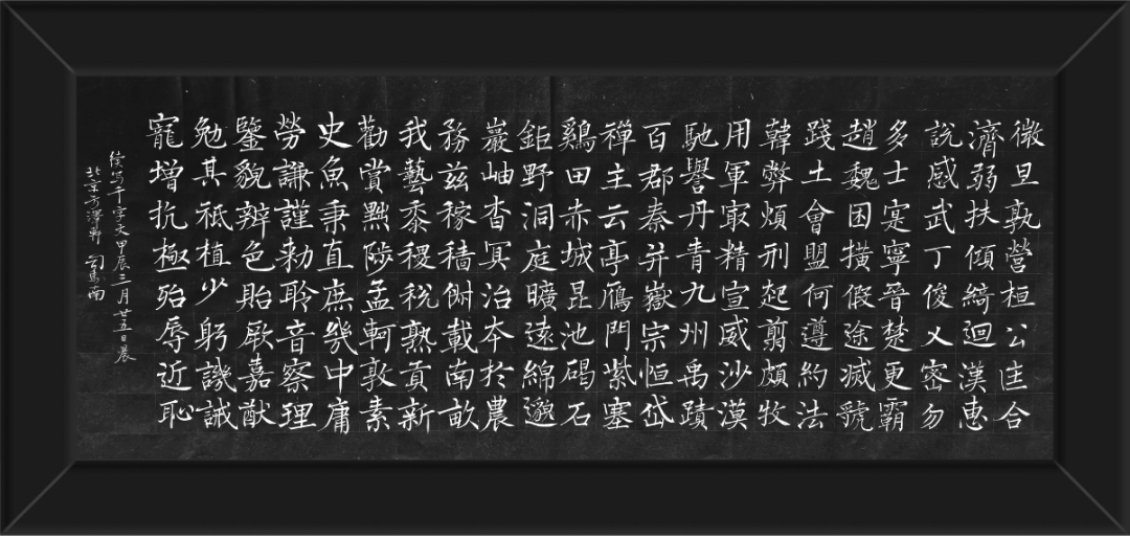 微旦孰營桓公匡合
濟弱扶傾綺迴漢惠
說感武丁俊乂密勿
多士寔寧晉楚更霸
趙魏困橫假途滅虢
踐土會盟何遵約法
韓弊煩刑起翦頗牧
用軍㝡精宣威沙漠
馳譽丹青九州禹蹟
百郡秦并嶽宗恒岱
禪主云亭鴈門紫塞
鷄田赤城昆池碣石
鉅野洞庭曠遠綿邈
巖岫杳冥治夲於農
務茲稼穡俶載南畝
我藝黍稷稅熟貢新
勸賞黜陟孟軻敦素
史魚秉直庶幾中庸
勞謙謹勑聆音察理
鑒貌辨色貽厥嘉猷
勉其祗植少躬譏誡
寵增抗極殆辱近恥
徐寫千字文甲辰三月廿五日晨
北京方澤軒 司馬南